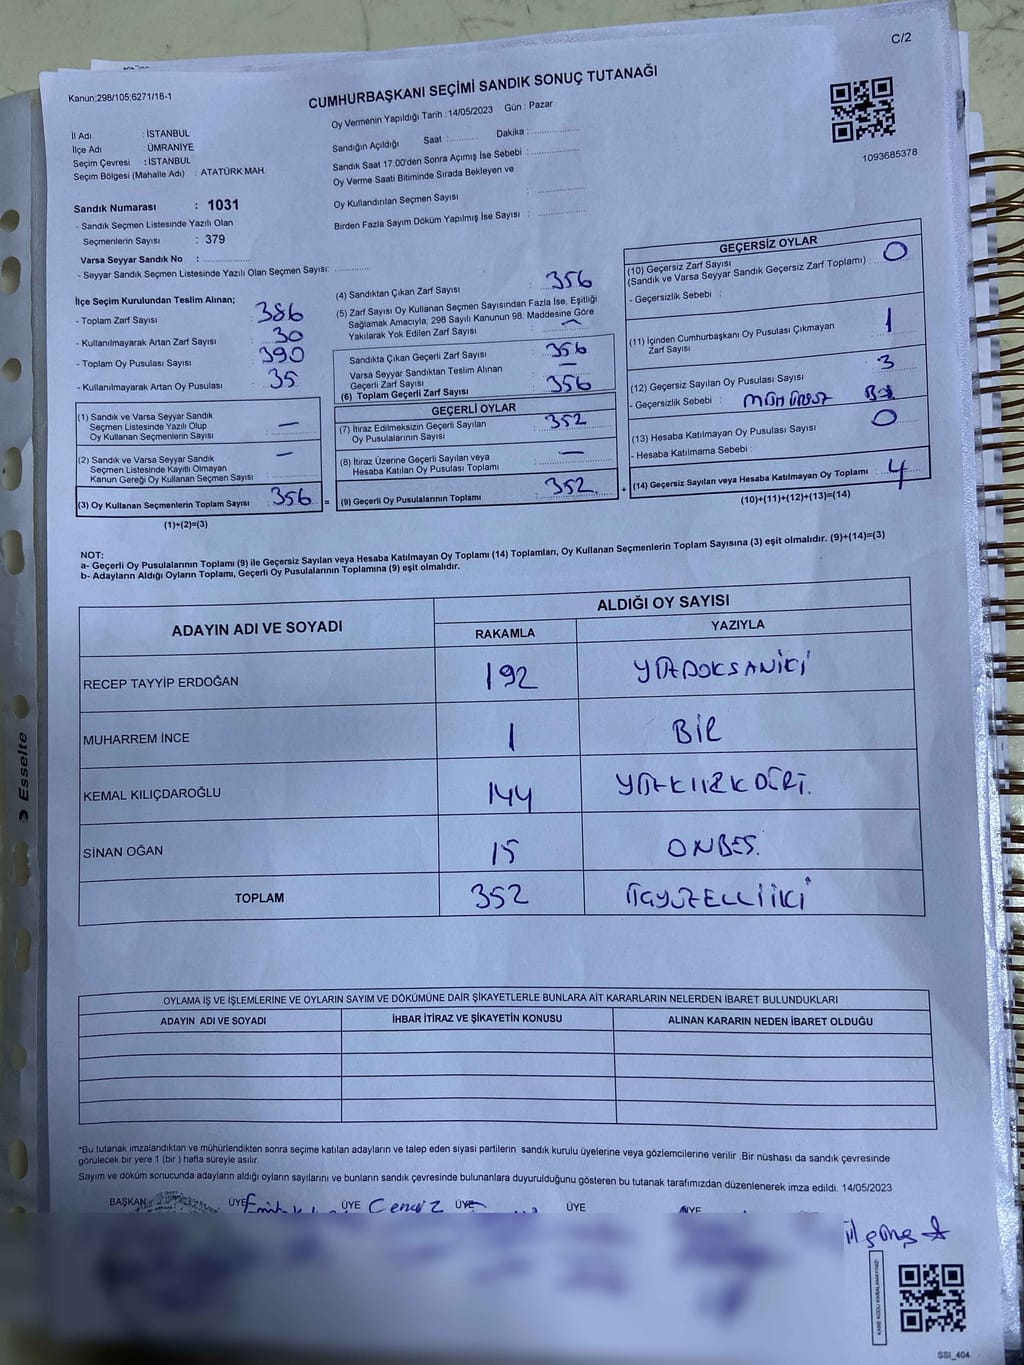 C/2
Kanun;298/105;6271/18-1
CUMHURBAŞKANI SEÇİMİ SANDIK SONUÇ TUTANAĞI
İl Adı : İSTANBUL
İlçe Adı : ÜMRANİYE
Seçim Çevresi : İSTANBUL
Seçim Bölgesi (Mahalle Adı) : ATATÜRK MAH.
Sandık Numarası : 1031
- Sandık Seçmen Listesinde Yazılı Olan
Seçmenlerin Sayısı : 379
Varsa Seyyar Sandık No :
- Seyyar Sandık Seçmen Listesinde Yazılı Olan Seçmen Sayısı:
Oy Vermenin Yapıldığı Tarih : 14/05/2023 Gün : Pazar
Sandığın Açıldığı Saat : Dakika :
Sandık Saat 17.00'den Sonra Açımış İse Sebebi :
Oy Verme Saati Bitiminde Sırada Bekleyen ve
Oy Kullandırılan Seçmen Sayısı :
Birden Fazla Sayım Döküm Yapılmış İse Sayısı :
1093685378
İlçe Seçim Kurulundan Teslim Alınan;
- Toplam Zarf Sayısı : 386
- Kullanılmayarak Artan Zarf Sayısı : 30
- Toplam Oy Pusulası Sayısı : 390
- Kullanılmayarak Artan Oy Pusulası : 35
(1) Sandık ve Varsa Seyyar Sandık
Seçmen Listesinde Yazılı Olup
Oy Kullanan Seçmenlerin Sayısı : —
(2) Sandık ve Varsa Seyyar Sandık
Seçmen Listesinde Kayıtlı Olmayan
Kanun Gereği Oy Kullanan Seçmen Sayısı : —
(3) Oy Kullanan Seçmenlerin Toplam Sayısı : 356 =
(1)+(2)=(3)
(4) Sandıktan Çıkan Zarf Sayısı : 356
(5) Zarf Sayısı Oy Kullanan Seçmen Sayısından Fazla İse, Eşitliği
Sağlamak Amacıyla, 298 Sayılı Kanunun 98. Maddesine Göre
Yakılarak Yok Edilen Zarf Sayısı : —
Sandıkta Çıkan Geçerli Zarf Sayısı : 356
Varsa Seyyar Sandıktan Teslim Alınan
Geçerli Zarf Sayısı : —
(6) Toplam Geçerli Zarf Sayısı : 356
GEÇERLİ OYLAR
(7) İtiraz Edilmeksizin Geçerli Sayılan
Oy Pusulalarının Sayısı : 352
(8) İtiraz Üzerine Geçerli Sayılan veya
Hesaba Katılan Oy Pusulası Toplamı : —
(9) Geçerli Oy Pusulalarının Toplamı : 352 +
GEÇERSİZ OYLAR
(10) Geçersiz Zarf Sayısı
(Sandık ve Varsa Seyyar Sandık Geçersiz Zarf Toplamı) : 0
- Geçersizlik Sebebi :
(11) İçinden Cumhurbaşkanı Oy Pusulası Çıkmayan
Zarf Sayısı : 1
(12) Geçersiz Sayılan Oy Pusulası Sayısı : 3
- Geçersizlik Sebebi :
(13) Hesaba Katılmayan Oy Pusulası Sayısı : 0
- Hesaba Katılmama Sebebi :
(14) Geçersiz Sayılan veya Hesaba Katılmayan Oy Toplamı : 4
(10)+(11)+(12)+(13)=(14)
NOT:
a- Geçerli Oy Pusulalarının Toplamı (9) ile Geçersiz Sayılan veya Hesaba Katılmayan Oy Toplamı (14) Toplamları, Oy Kullanan Seçmenlerin Toplam Sayısına (3) eşit olmalıdır. (9)+(14)=(3)
b- Adayların Aldığı Oyların Toplamı, Geçerli Oy Pusulalarının Toplamına (9) eşit olmalıdır.
ADAYIN ADI VE SOYADI ALDIĞI OY SAYISI
RAKAMLA YAZIYLA
RECEP TAYYİP ERDOĞAN 192 YÜZDOKSANİKİ
MUHARREM İNCE 1 BİR
KEMAL KILIÇDAROĞLU 144 YÜZKIRKDÖRT.
SİNAN OĞAN 15 ONBEŞ.
TOPLAM 352 ÜÇYÜZELLİİKİ
OYLAMA İŞ VE İŞLEMLERİNE VE OYLARIN SAYIM VE DÖKÜMÜNE DAİR ŞİKAYETLERLE BUNLARA AİT KARARLARIN NELERDEN İBARET BULUNDUKLARI
ADAYIN ADI VE SOYADI İHBAR İTİRAZ VE ŞİKAYETİN KONUSU ALINAN KARARIN NEDEN İBARET OLDUĞU
*Bu tutanak imzalandıktan ve mühürlendikten sonra seçime katılan adayların ve talep eden siyasi partilerin sandık kurulu üyelerine veya gözlemcilerine verilir .Bir nüshası da sandık çevresinde
görülecek bir yere 1 (bir ) hafta süreyle asılır.
Sayım ve döküm sonucunda adayların aldığı oyların sayılarını ve bunların sandık çevresinde bulunanlara duyurulduğunu gösteren bu tutanak tarafımızdan düzenlenerek imza edildi. 14/05/2023
BAŞKAN ÜYE ÜYE Cengiz ÜYE ÜYE ÜYE
KARE KODU KARALAMAYINIZ!
SSI_404
Esselte